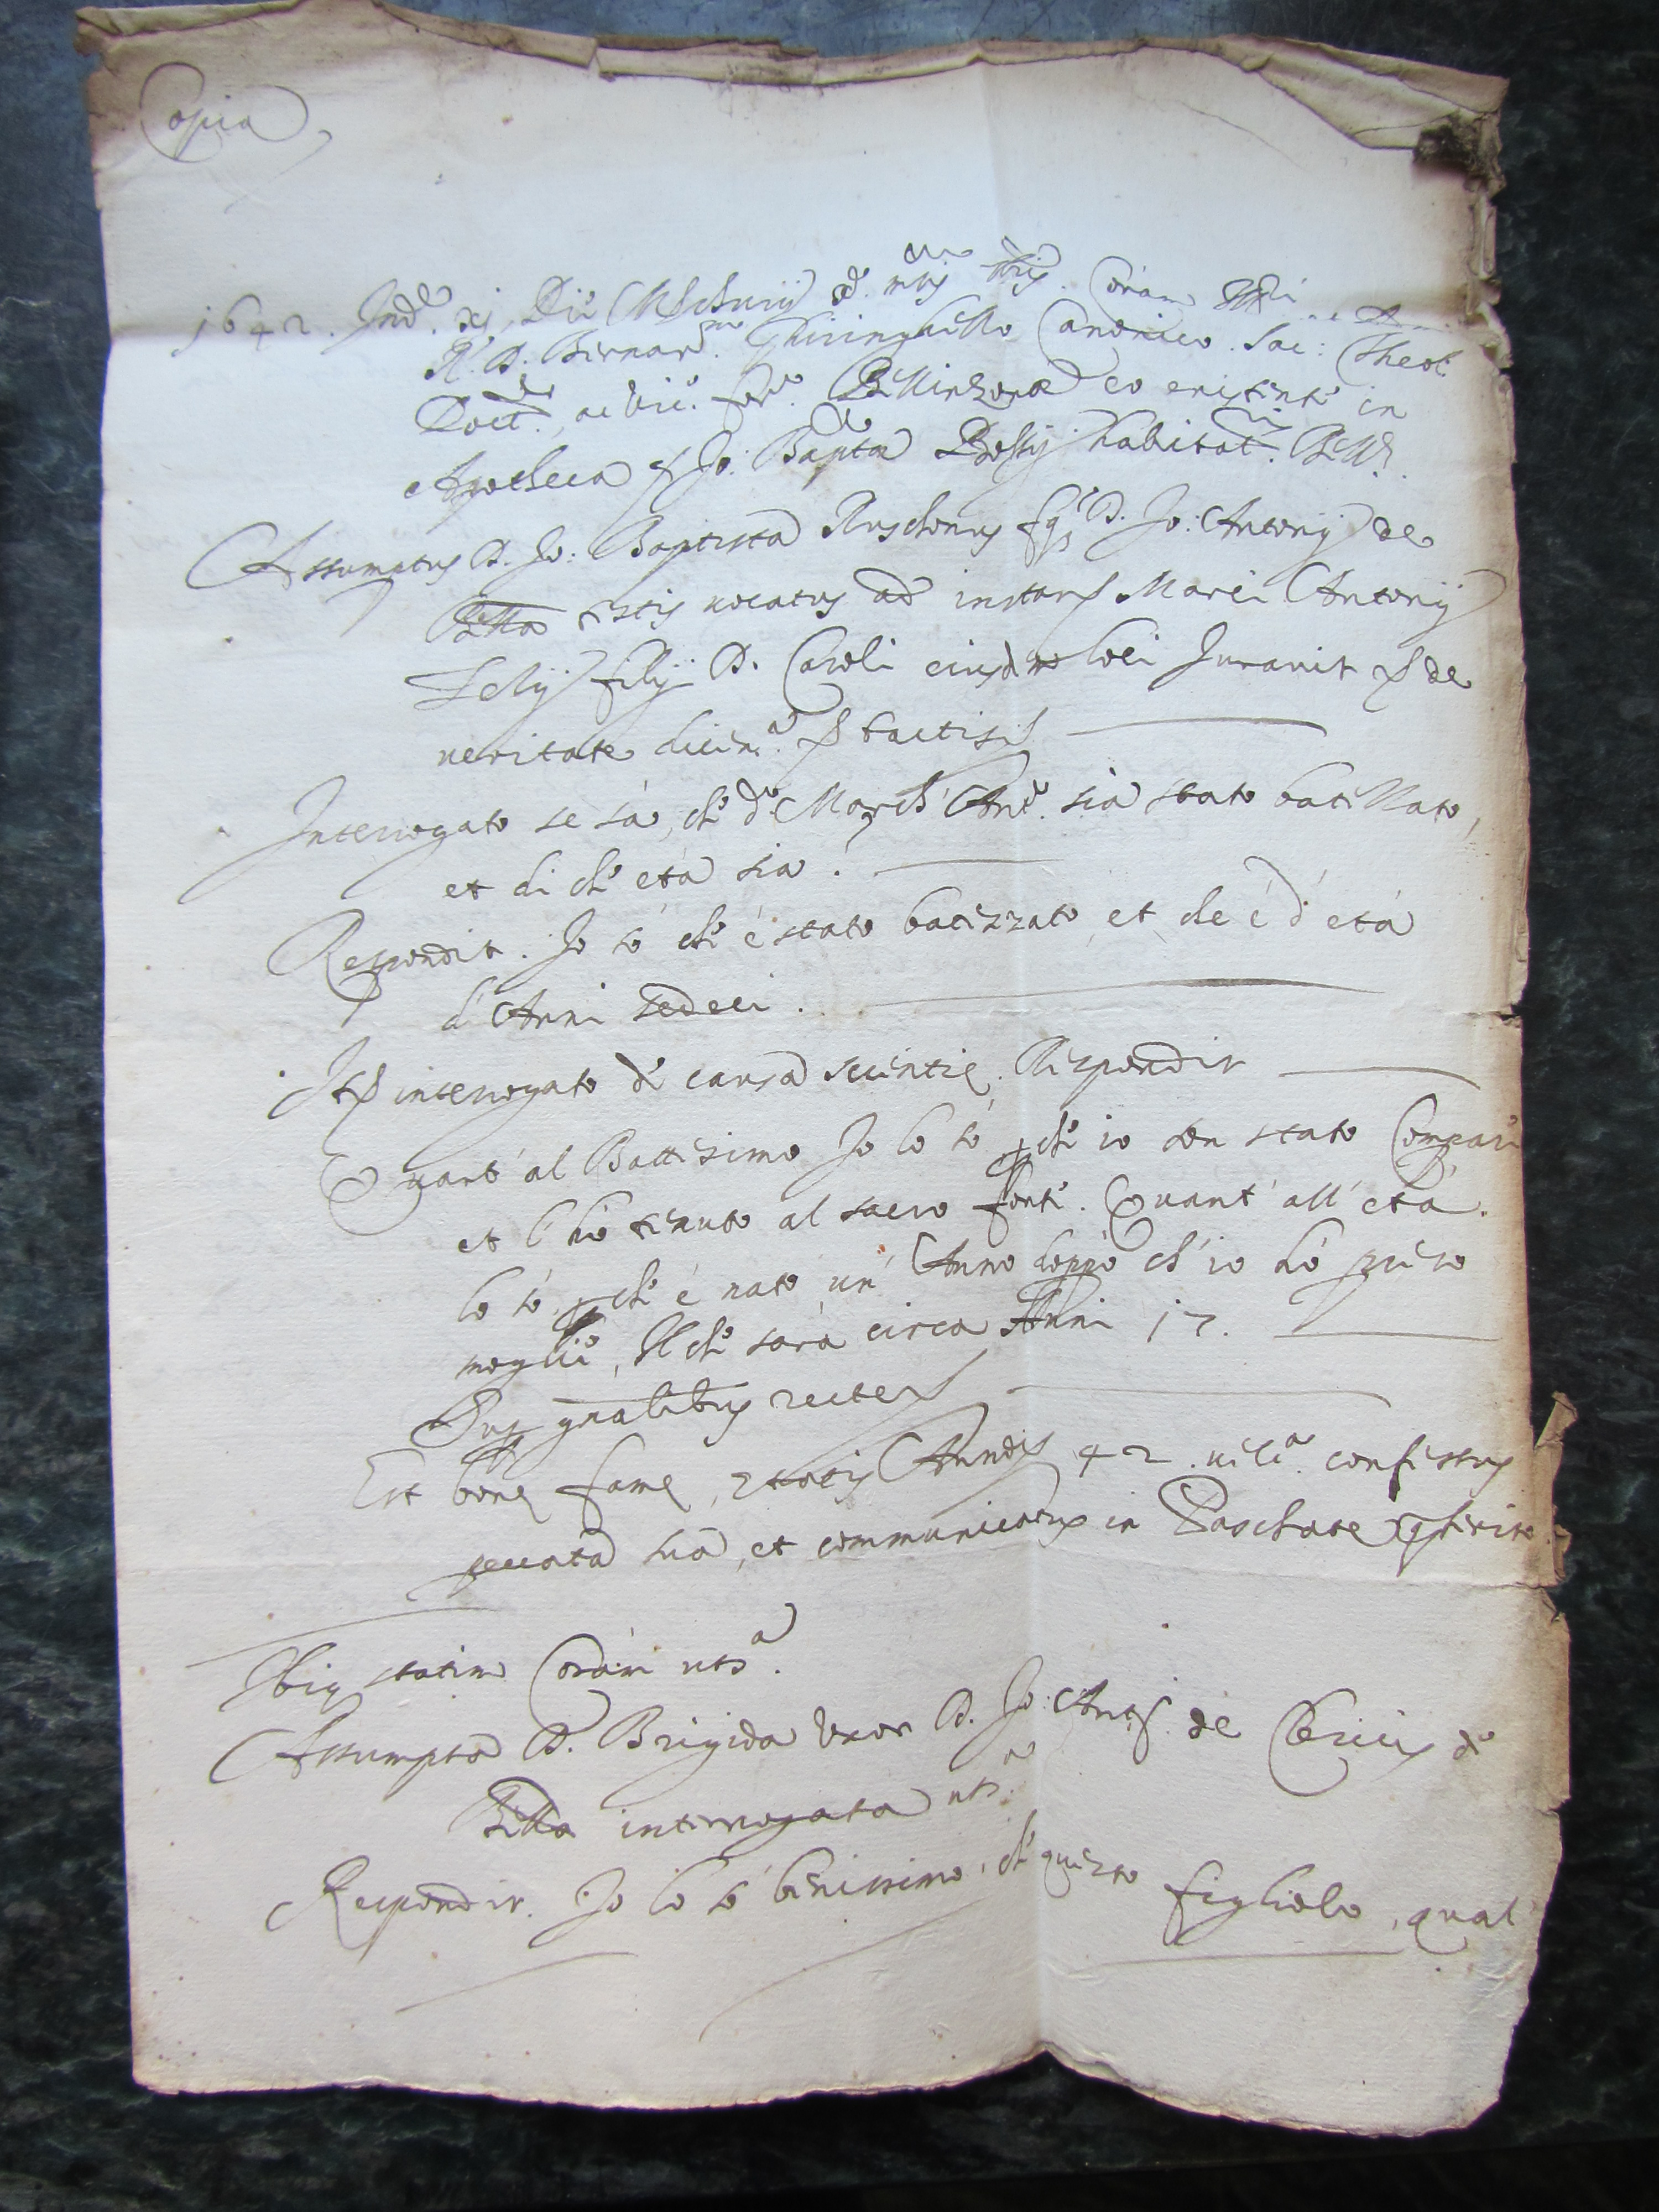 Copia
1642. Ind.e xi, Die Mercurij
R. D. Bernar.mo Ghiringhello Canonico. Sac: Theol.
Doct.re, ac Vic.o for.o Bellinzonæ eo existente in
Apotheca Jo: Bapta habitat. Bellz.
Assumptus D. Jo: Baptista Ruschonus fq. D. Jo: Antonij de
Billa testis vocatus ad instant Marci Antonij
filij D. Caroli eiusdem loci Juravit de
veritate dicen.a tactis
Interrogato se sà, che d.o March' Ant.o sia stato batizzato,
et di che età sia.
Respondit. Io sò che è stato batizzato, et che è d'età
d'Anni sedeci.
Itē interrogato de causa scientie. Respondit
Quant' al Battesimo Io lo sò, che io son stato Compare
et l'hò tenuto al sacro fonte. Quant' all' età.
lo sò, che è nato un' Anno doppò ch' io hò preso
moglie, Il che sarà circa Anni 17.
Sup gñalibus recte
Est bone fame, etatis Annor 42. vel c.a confessus
peccata sua, et communicatus in Paschate preterito.
Ibiq statim Coram uts.a
Assumpta D. Brigida Uxor D. Jo: Ant. de Clericis de
Billa interrogata uts.a
Respondit. Io lo sò benissimo, ch' questo figliolo, qual'